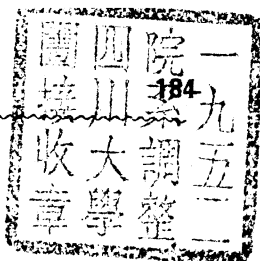 一九五二
院系調整
四川大學
圖接收章
184